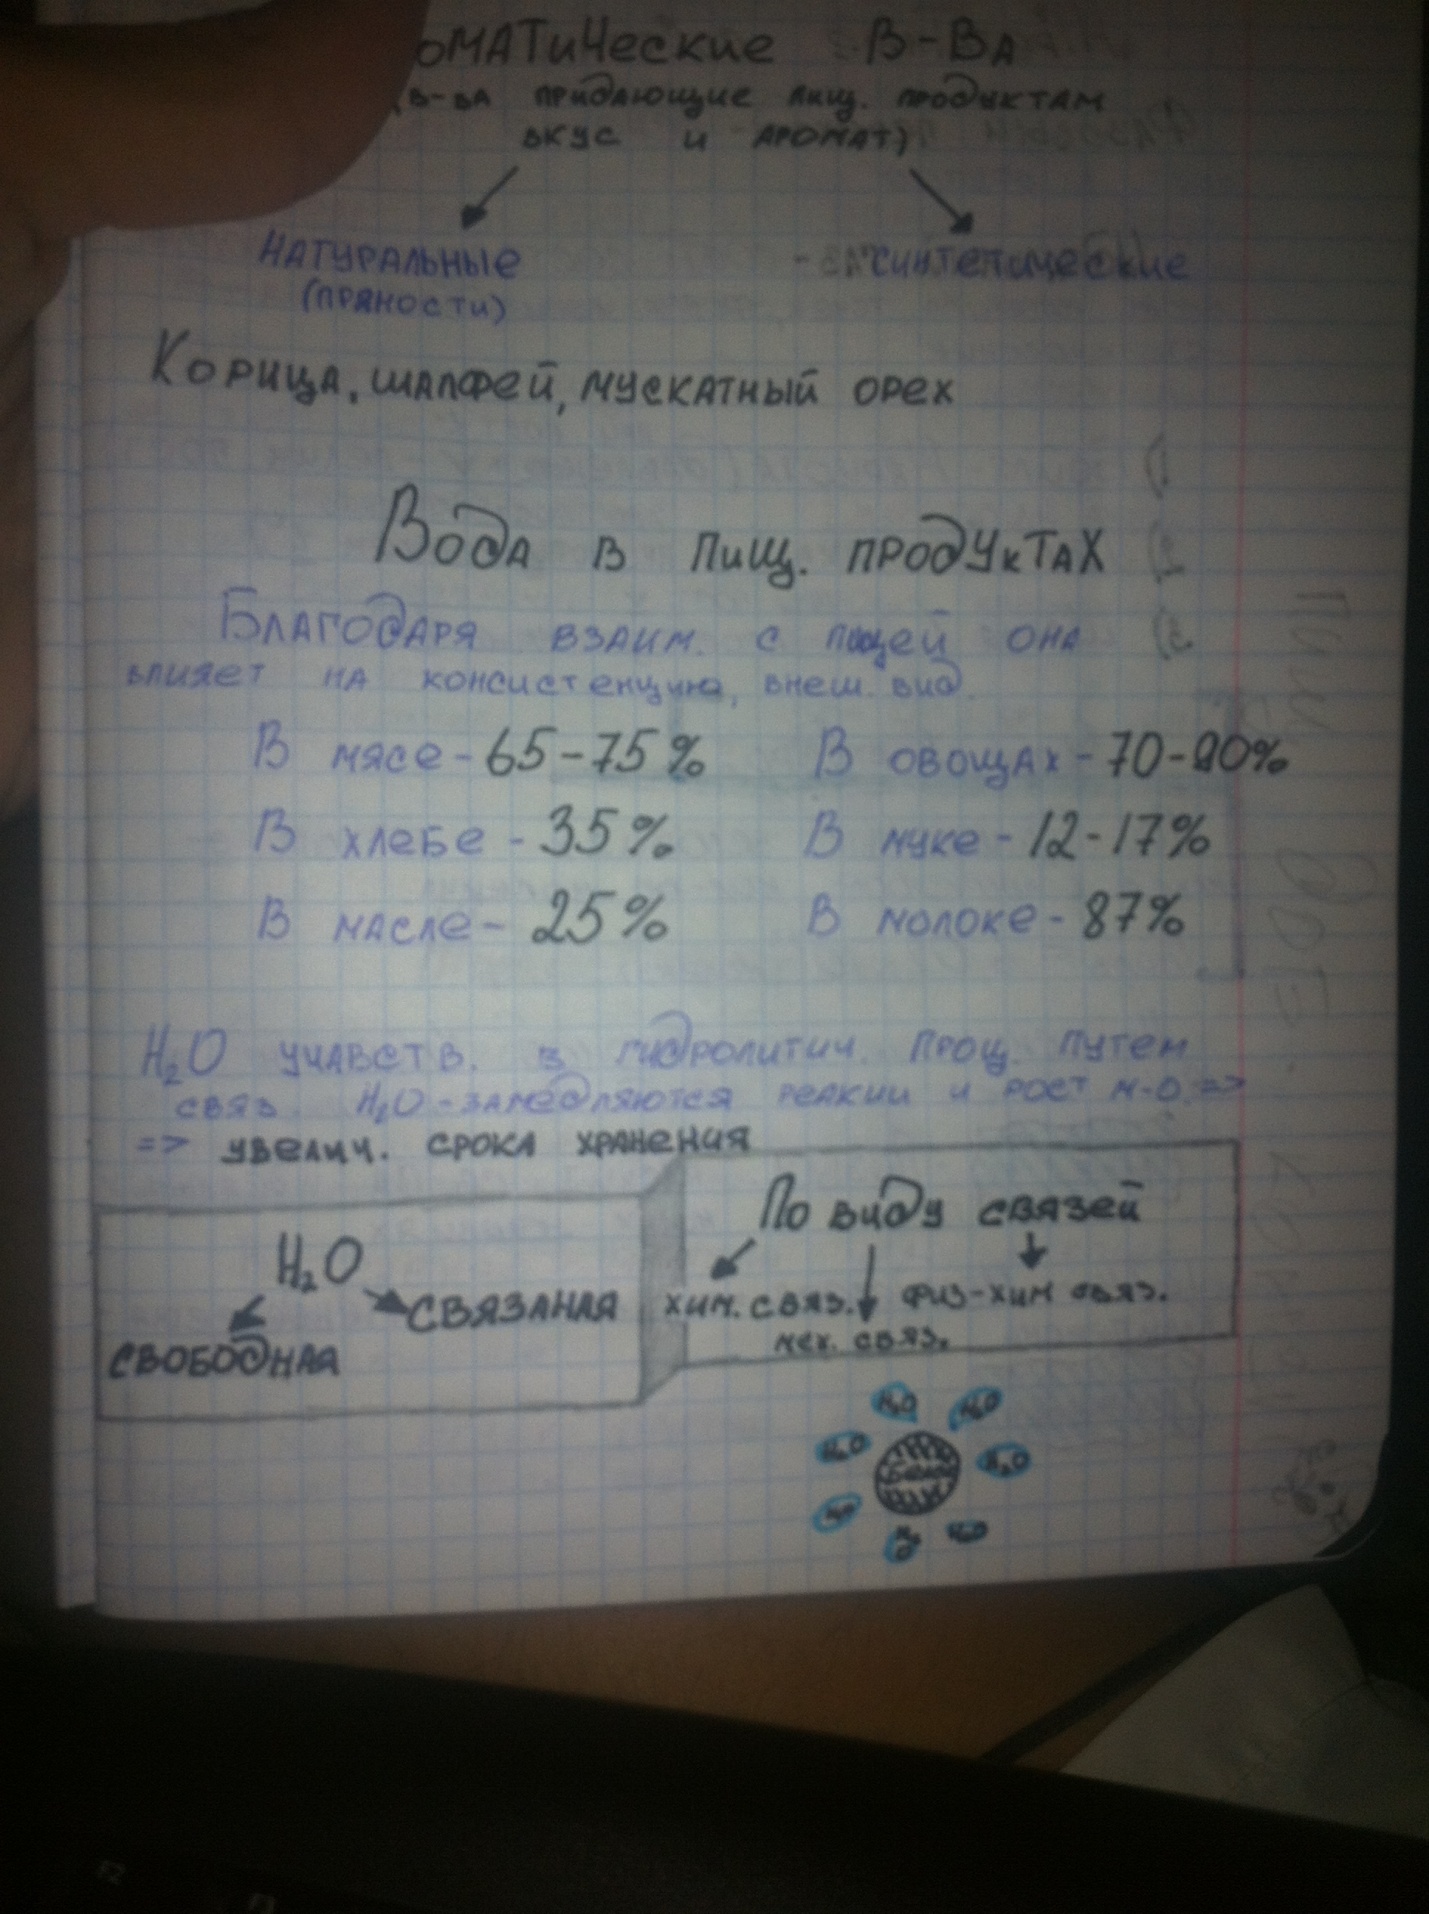 оматические в-ва
(в-ва придающие пищ. продуктам
вкус и аромат)
натуральные синтетические
(пряности)
Корица, шалфей, мускатный орех
Вода в пищ. продуктах
Благодаря взаим. с пищей она
влияет на консистенцию, внеш. вид.
В мясе - 65-75% В овощах - 70-90%
В хлебе - 35% В муке - 12-17%
В масле - 25% В молоке - 87%
H₂O учавств. в гидролитич. проц. путем
связ. H₂O - замедляются реакии и рост м-о. =>
=> увелич. срока хранения
По виду связей
H₂O
хим. связ. физ-хим связ.
связаная
мех. связ.
свободная
H₂O H₂O
H₂O H₂O
Белок
H₂O H₂O H₂O
F2